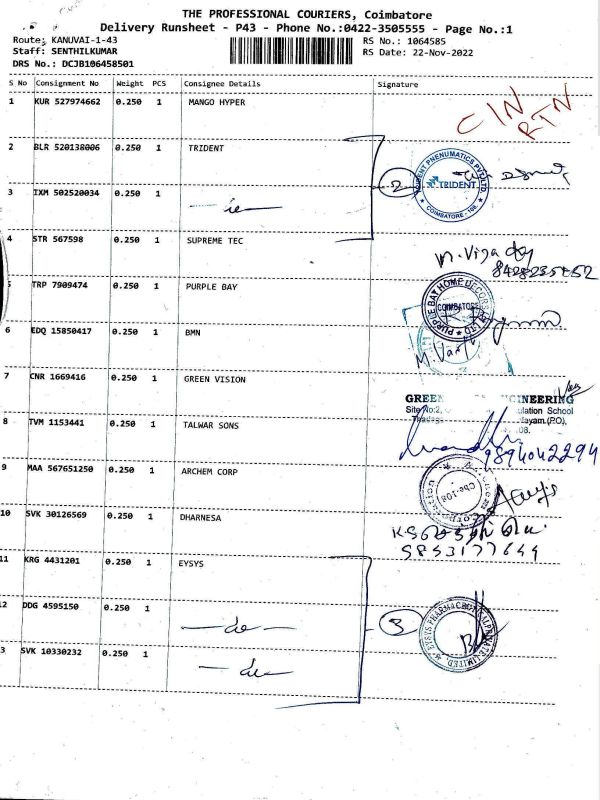 THE PROFESSIONAL COURIERS, Coimbatore
Delivery Runsheet - P43 - Phone No.:0422-3505555 - Page No.:1
Route: KANUVAI-1-43 RS No.: 1064585
Staff: SENTHILKUMAR RS Date: 22-Nov-2022
DRS No.: DCJB106458501
S No Consignment No Weight PCS Consignee Details Signature
1 KUR 527974662 0.250 1 MANGO HYPER
CIN
RTN
2 BLR 520138006 0.250 1 TRIDENT
TRIDENT PNEUMATICS PVT LTD
TRIDENT
COIMBATORE - 108
2
3 IXM 502520034 0.250 1
4 STR 567598 0.250 1 SUPREME TEC
TRP 7909474 0.250 1 PURPLE BAY
COIMBATORE
6 EDQ 15850417 0.250 1 BMN
7 CNR 1669416 0.250 1 GREEN VISION
GREEN
Site No:2, ulation School
ayam.(PO),
8 TVM 1153441 0.250 1 TALWAR SONS
9894042294
9 MAA 567651250 0.250 1 ARCHEM CORP
Cbe-108
10 SVK 30126569 0.250 1 DHARNESA
11 KRG 4431201 0.250 1 EYSYS
12 DDG 4595150 0.250 1
— do —
3
EYSYS PHARMACEUTICAL PRIVATE LIMITED
3 SVK 10330232 0.250 1
— do —